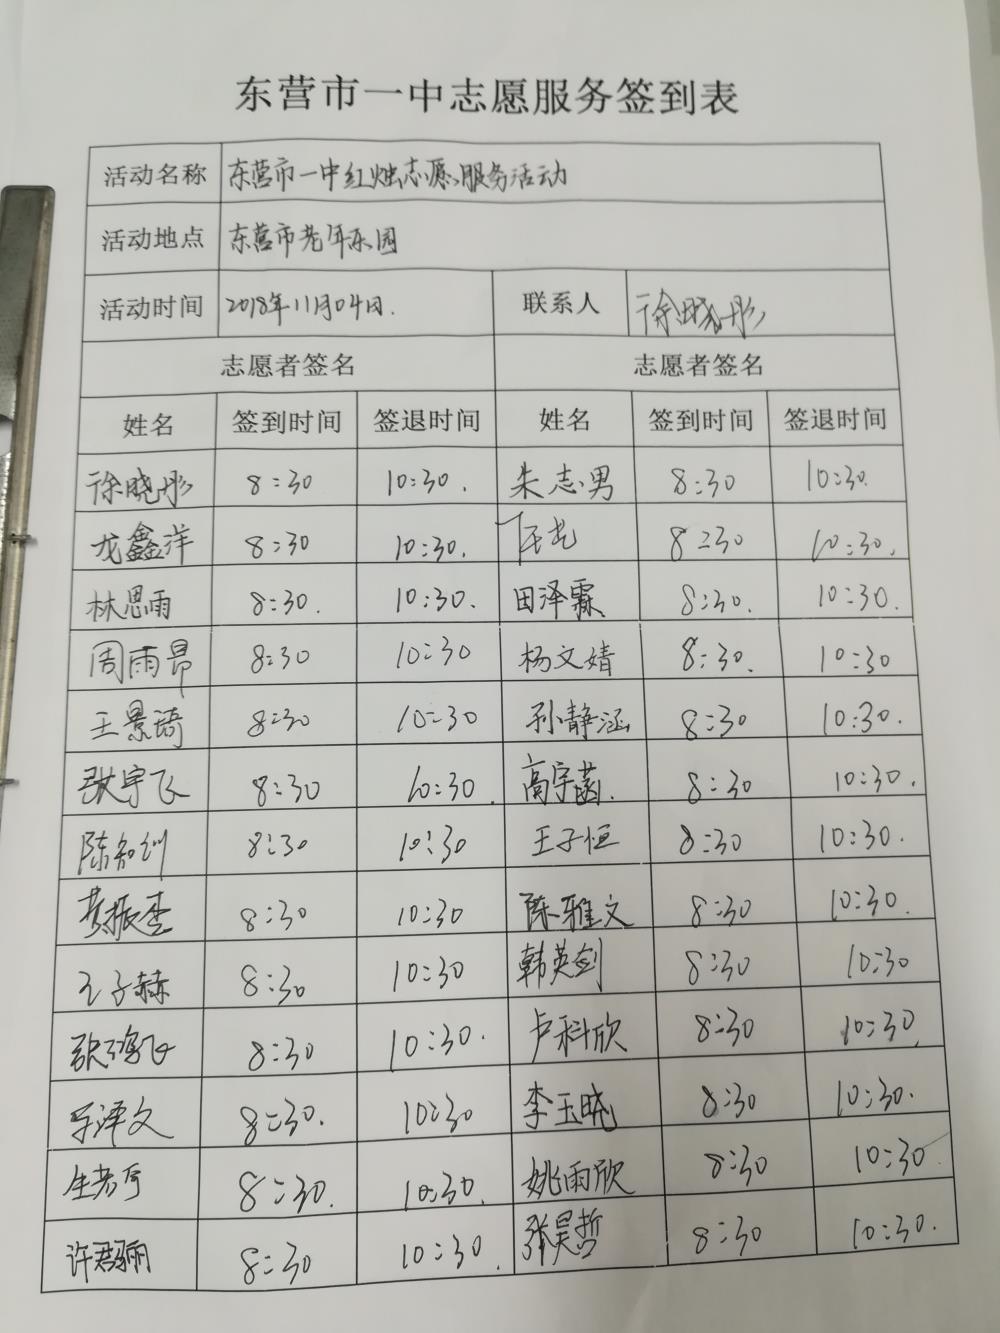 东营市一中志愿服务签到表
活动名称 东营市一中红烛志愿服务活动
活动地点 东营市老年乐园
活动时间 2018年11月04日. 联系人 徐晓彤
志愿者签名 志愿者签名
姓名 签到时间 签退时间 姓名 签到时间 签退时间
徐晓彤 8:30 10:30. 朱志男 8:30 10:30.
龙鑫洋 8:30 10:30. 8:30 10:30.
林思雨 8:30. 10:30. 田泽霖 8:30. 10:30.
周雨昂 8:30 10:30 杨文婧 8:30. 10:30
王景琦 8:30 10:30 孙静涵 8:30 10:30.
张宇飞 8:30 10:30. 高宇菡. 8:30 10:30.
陈知训 8:30 10:30 王子恒 8:30 10:30.
振杰 8:30 10:30 陈雅文 8:30 10:30.
王子赫 8:30 10:30 韩英剑 8:30 10:30
张鸿飞 8:30 10:30. 卢科欣 8:30 10:30.
泽文 8:30. 10:30 李玉晓 8:30 10:30.
8:30. 10:30. 姚雨欣 8:30 10:30
许君骊 8:30 10:30. 张昊哲 8:30 10:30.